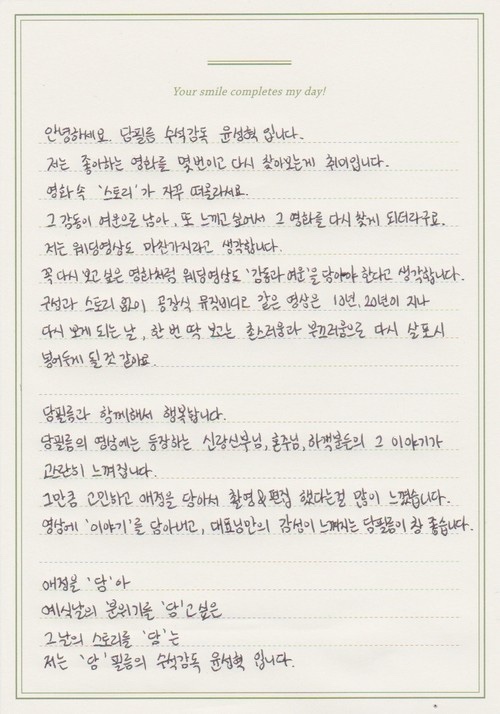 Your smile completes my day!
안녕하세요. 담필름 수석감독 윤성혁 입니다.
저는 좋아하는 영화를 몇번이고 다시 찾아보는게 취미입니다.
영화 속 '스토리'가 자꾸 떠올라서요.
그 감동이 여운으로 남아, 또 느끼고 싶어서 그 영화를 다시 찾게 되더라구요.
저는 웨딩영상도 마찬가지라고 생각합니다.
꼭 다시 보고 싶은 영화처럼 웨딩영상도 '감동과 여운'을 담아야 한다고 생각합니다.
구성과 스토리 없이 공장식 뮤직비디오 같은 영상은 10년, 20년이 지나
다시 보게 되는 날, 한 번 딱 보고는 촌스러움과 부끄러움으로 다시 살포시
넣어두게 될 것 같아요.
담필름과 함께해서 행복합니다.
담필름의 영상에는 등장하는 신랑신부님, 혼주님, 하객분들의 그 이야기가
고스란히 느껴집니다.
그만큼 고민하고 애정을 담아서 촬영&편집 했다는걸 많이 느꼈습니다.
영상에 '이야기'를 담아내고, 대표님만의 감성이 느껴지는 담필름이 참 좋습니다.
애정을 '담'아
예식날의 분위기를 '담'고 싶은
그날의 스토리를 '담'는
저는 '담'필름의 수석감독 윤성혁 입니다.